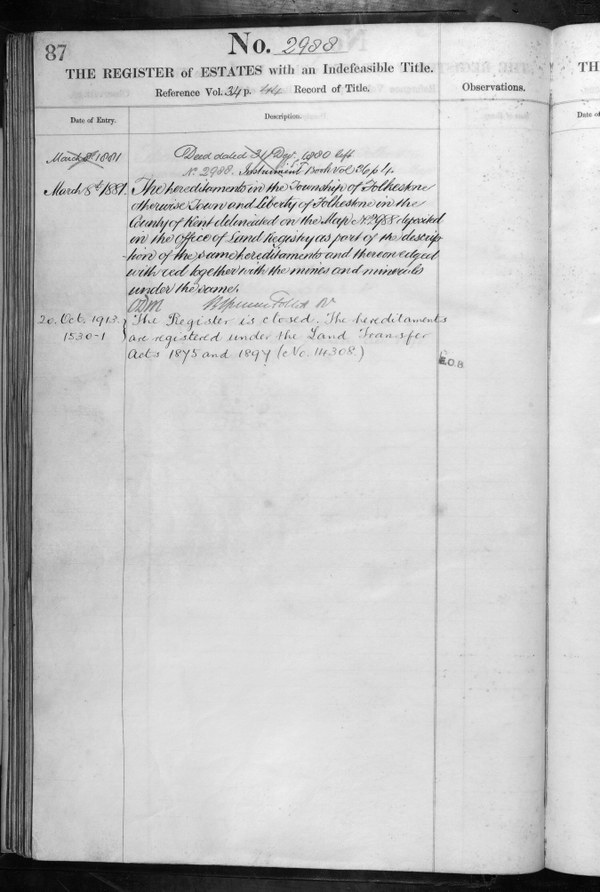 87
No. 2988
THE REGISTER of ESTATES with an Indefeasible Title.
Reference Vol. 34 p. Record of Title.
Observations.
Date of Entry.
Description.
March 8th 1881
Deed dated 31 1880 left
No 2988. Instrument Book Vol 36 p 4.
March 8th 1881.
The hereditaments in the Township of Folkestone
otherwise Town and Liberty of Folkestone in the
County of Kent delineated on the Map No 2988 deposited
in the Office of Land Registry as part of the descrip
-tion of the same hereditaments and thereon edged
with red together with the mines and minerals
under the same.
20. Oct. 1913.
1530-1
The Register is closed. The hereditaments
are registered under the Land Transfer
Acts 1875 and 1897 (No. 114308.)
E.O.B.
TH
Date of